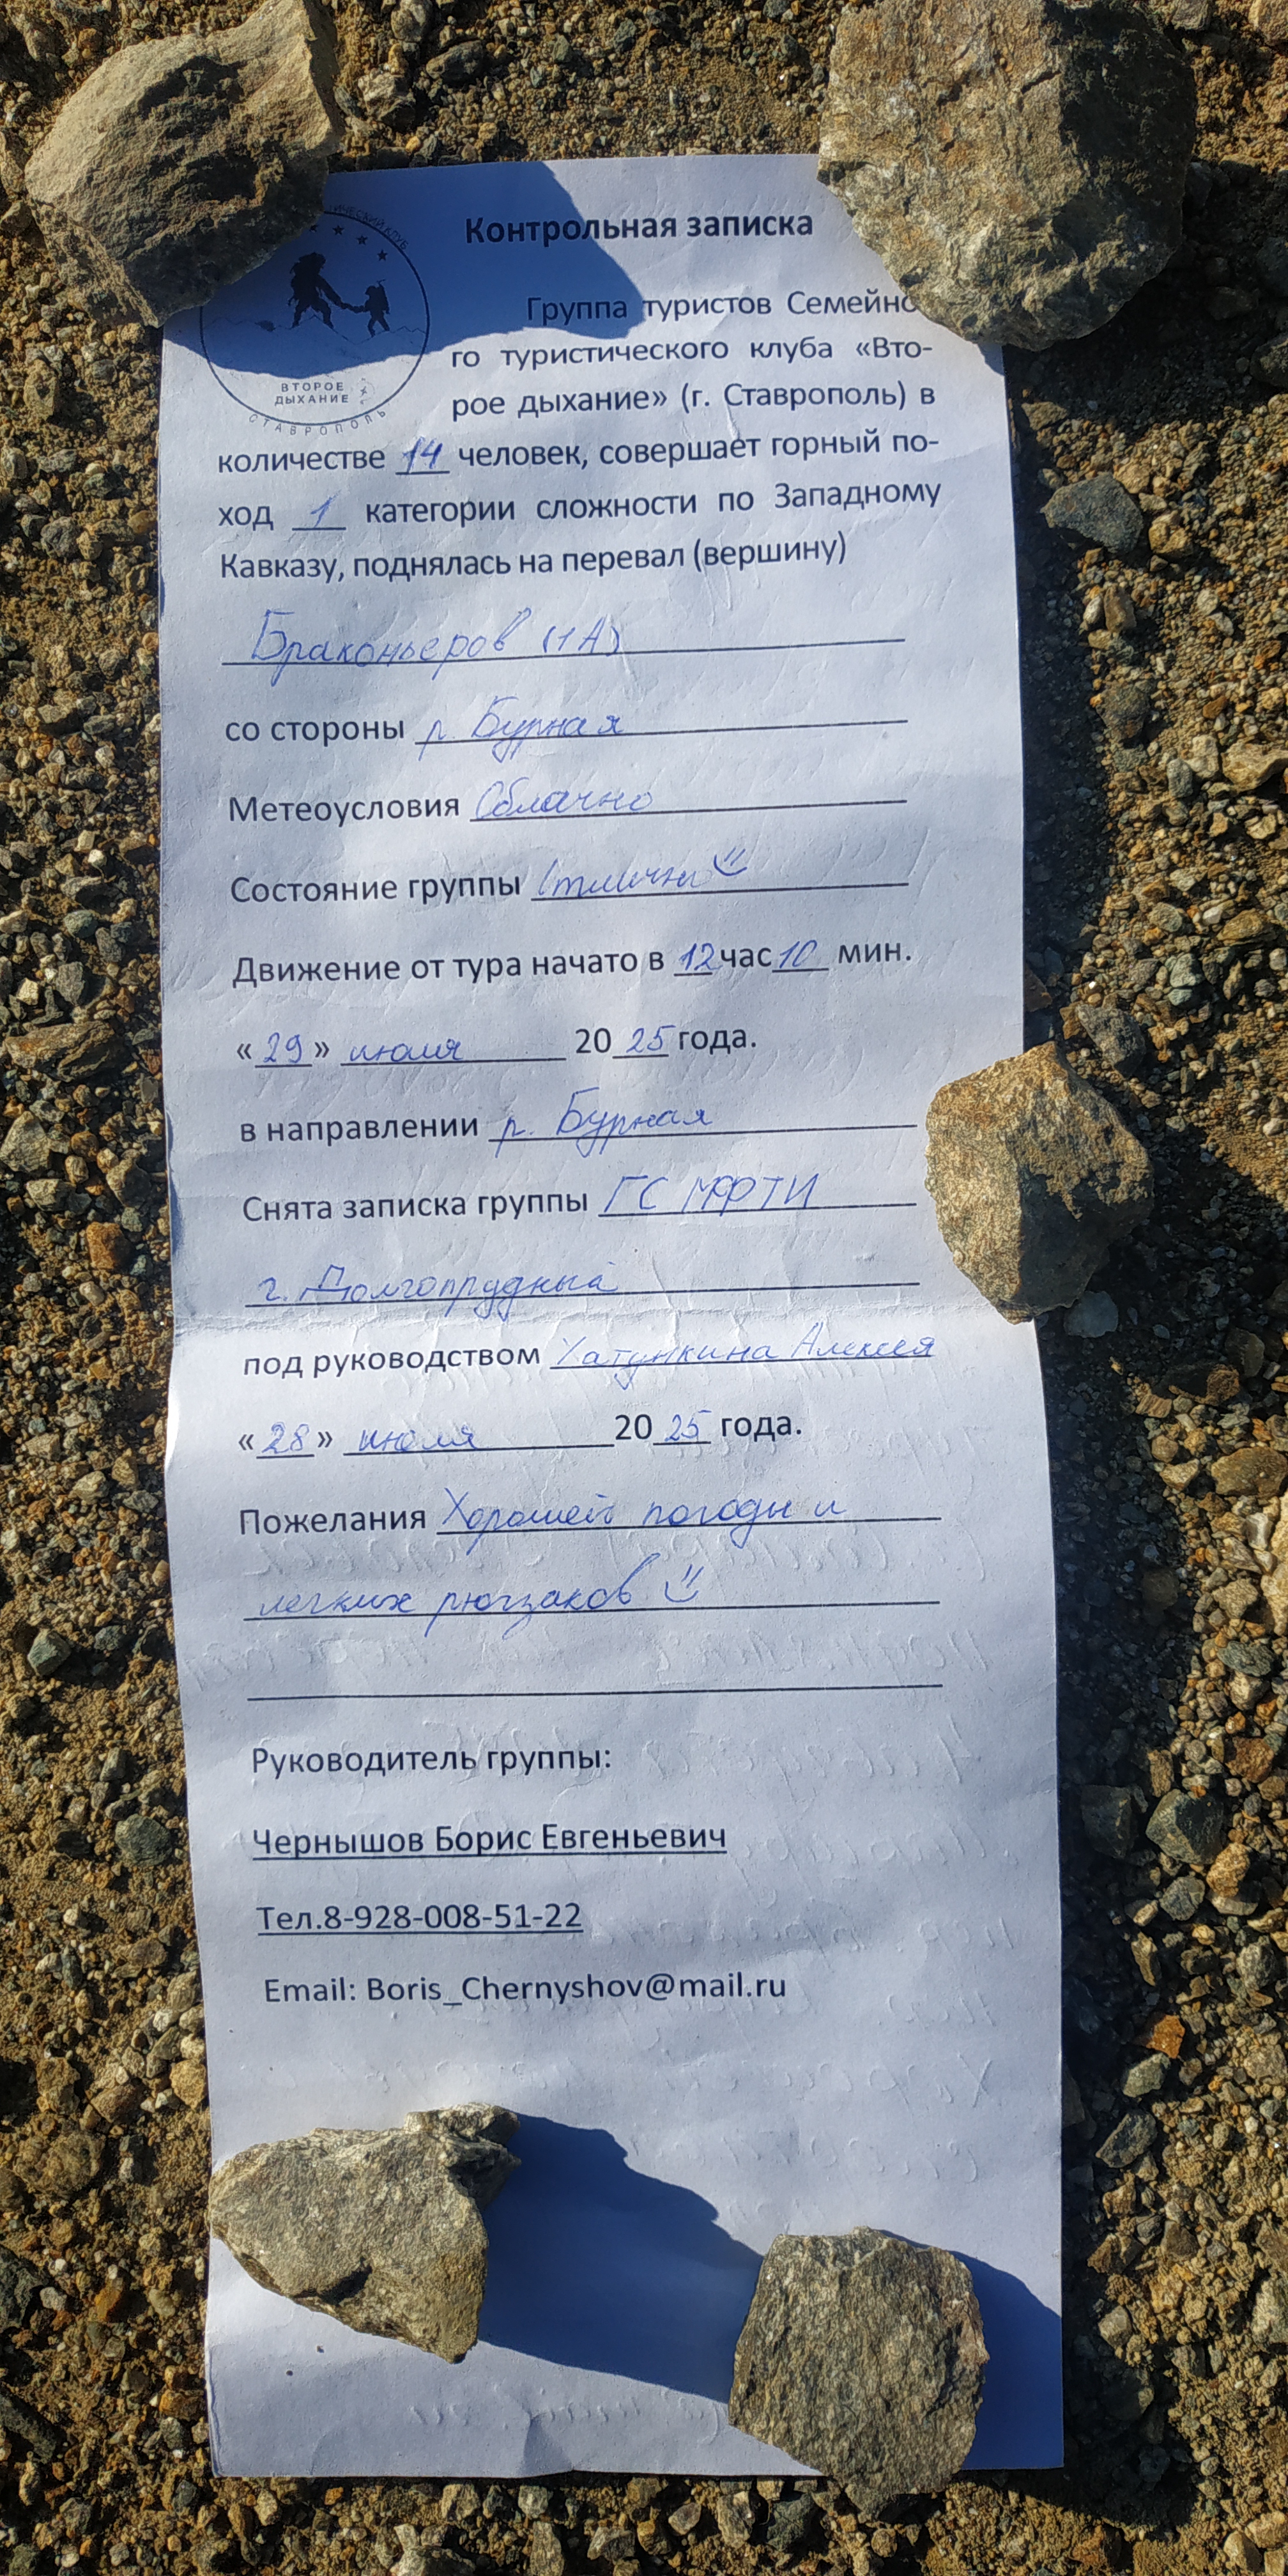 ИЧЕСКИЙ КЛУБ
ВТОРОЕ
ДЫХАНИЕ
СТАВРОПОЛЬ
Контрольная записка
Группа туристов Семейно
го туристического клуба «Вто-
рое дыхание» (г. Ставрополь) в
количестве 14 человек, совершает горный по-
ход 1 категории сложности по Западному
Кавказу, поднялась на перевал (вершину)
Браконьеров (1А)
со стороны р. Бурная
Метеоусловия Облачно
Состояние группы Отлично
Движение от тура начато в 12 час 10 мин.
«29» июля 2025 года.
в направлении р. Бурная
Снята записка группы ГС МФТИ
г. Долгопрудный
под руководством Хатункина Алексея
«28» июля 2025 года.
Пожелания Хорошей погоды и
легких рюкзаков
Руководитель группы:
Чернышов Борис Евгеньевич
Тел.8-928-008-51-22
Email: Boris_Chernyshov@mail.ru